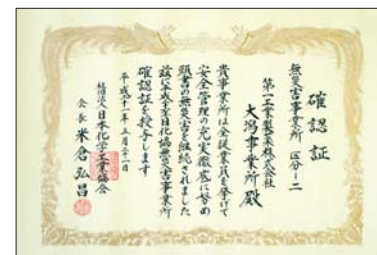 確認証
無災害事業所 区分ー二
第一工業製薬株式会社
大潟事業所殿
貴事業所は全従業員を挙げて
安全管理の充実徹底に努め
顕書の無災害を継続されました
茲に平成十年日化協無災害事業所
確認証を授与します
平成十一年五月二十一日
社団法人日本化学工業協会
会長 米倉弘昌